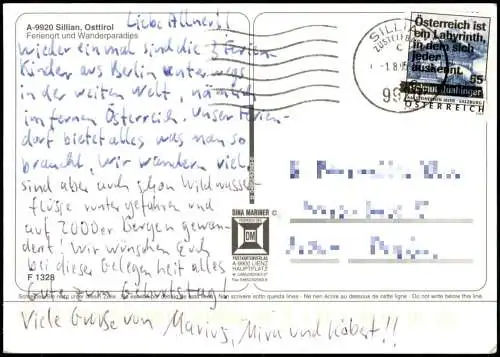 A-9920 Sillian, Osttirol
Ferienort und Wanderparadies
wieder einmal sind die 3 Ferien
Kinder aus Berlin unterwegs
in der weiten Welt, nämlich
im fernen Österreich. Unser Ferien-
dorf bietet alles was man so
braucht, wir wandern viel
sind aber auch schon Wildwasser
flüsse runtergefahren und
auf 2000er Bergen gewan-
dert! Wir wünschen Euch
bei dieser Gelegenheit alles
Gute zum Geburtstag!
Viele Grüße von Marius, Mira und Robert!!
F 1328
DINA MARINER
DM
POSTKARTENVERLAG
A-9900 LIENZ
HAUPTPLATZ
SILLIAN
9920
Österreich ist
ein Labyrinth,
in dem sich
jeder
auskennt.
Helmut Qualtinger
ÖSTERREICH
Nan scrivere sotto questa linea · Ne rien écrire au dessous de cette ligne · Do not write below this line.